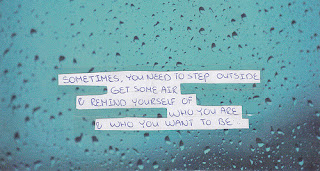 SOMETIMES, YOU NEED TO STEP OUTSIDE
GET SOME AIR
& REMIND YOURSELF OF
WHO YOU ARE
& WHO YOU WANT TO BE.